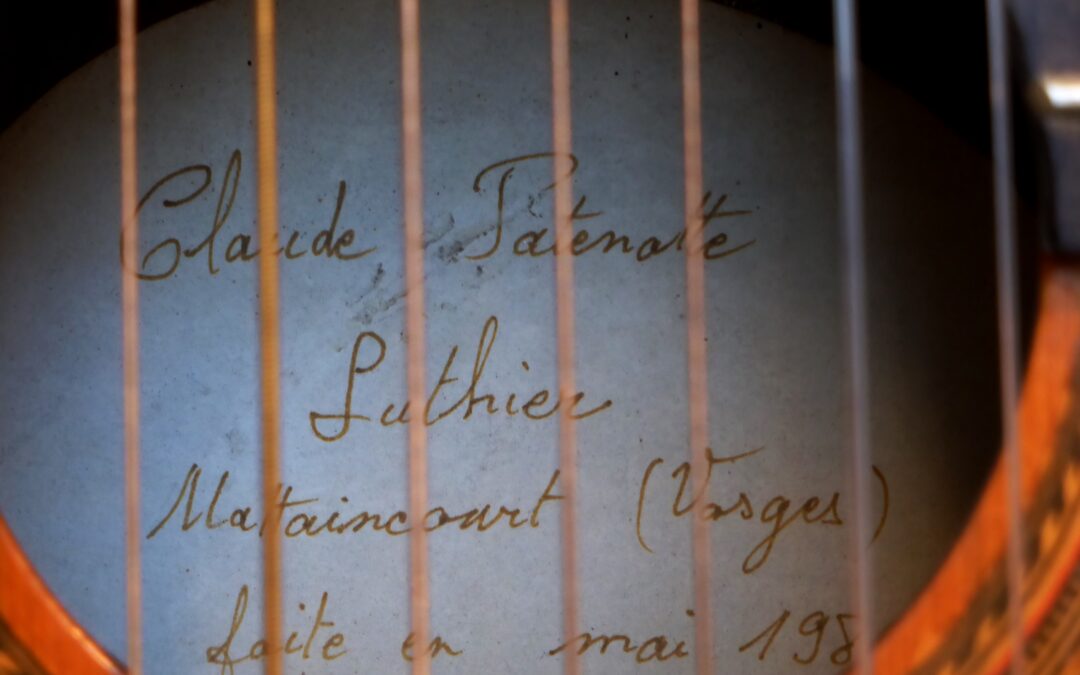 Claude Patenotte
Luthier
Mattaincourt (Vosges)
faite en mai